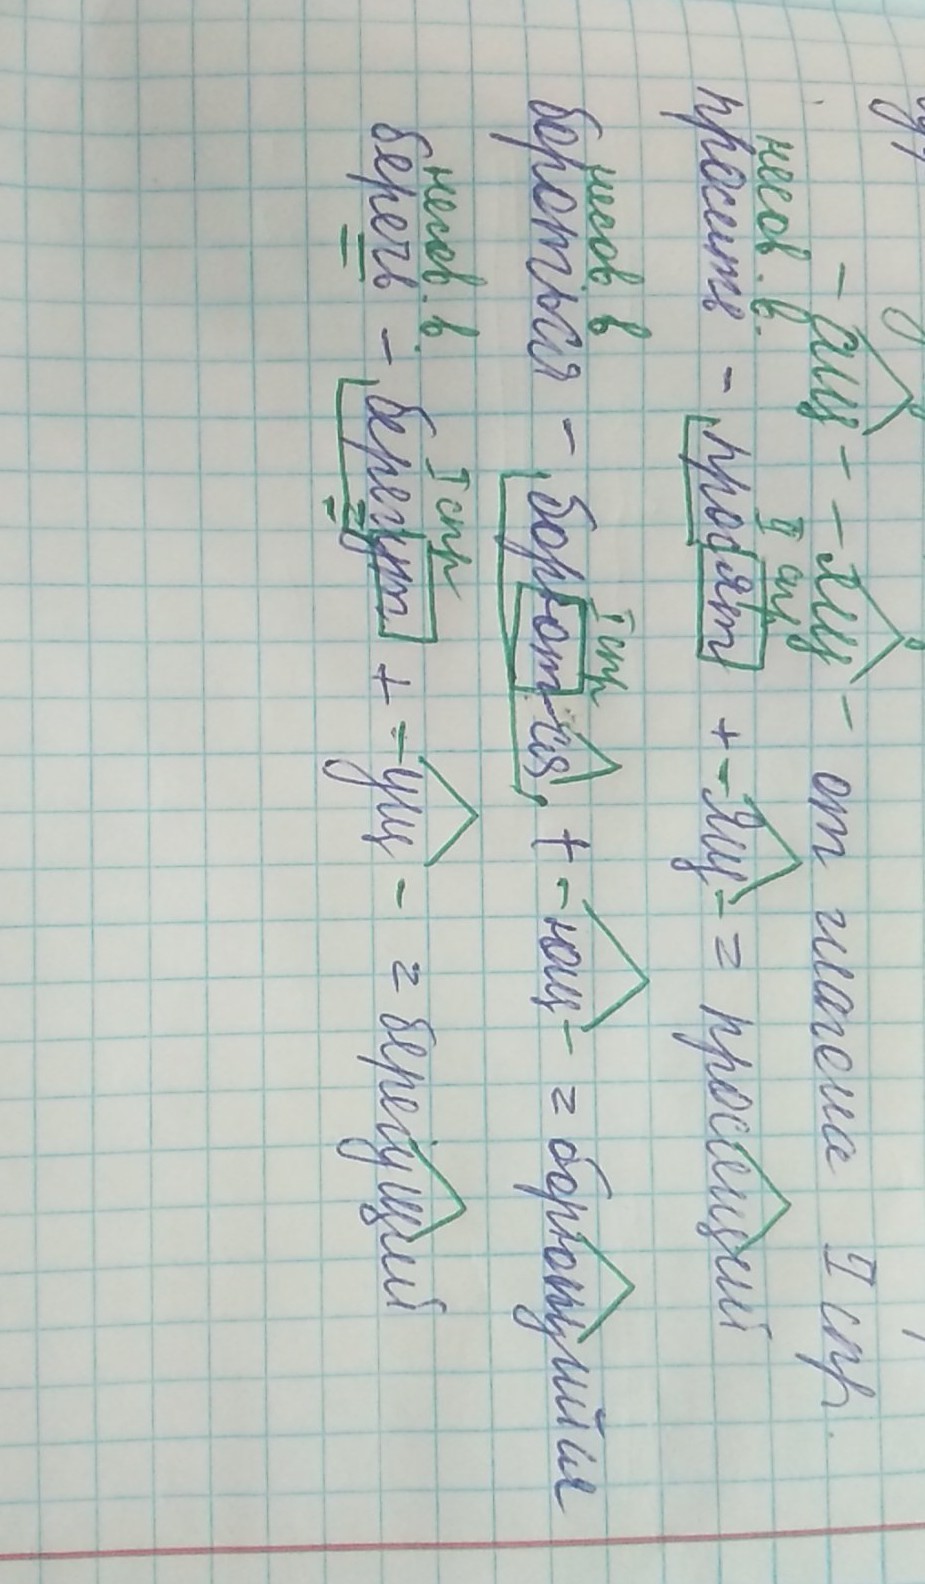 -ащ- -ящ- от глагола II спр.
несов. в. II спр
просить - просят + -ящ- = просящий
несов. в I спр
бороться - борются + -ющ- = борющийся
несов. в. I спр
беречь - берегут + -ущ- = берегущий